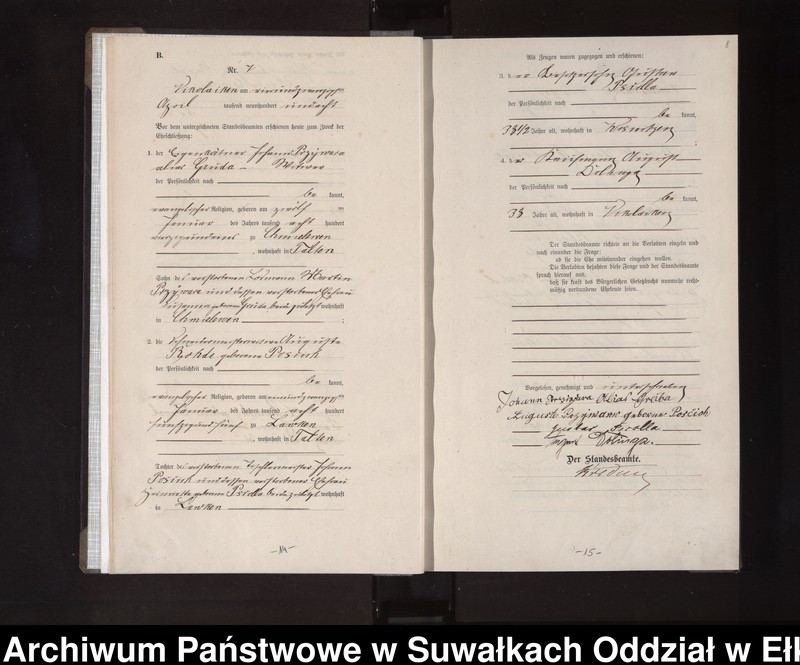 B.
Nr. 7
Nikolaiken am vierundzwanzigsten
April tausend neunhundert undacht
Vor dem unterzeichneten Standesbeamten erschienen heute zum Zweck der
Eheschließung:
1. der Eigenkätner Johann Przywara
alias Gruda - Witwer
der Persönlichkeit nach
be kannt,
evangelischer Religion, geboren am zwölften
Januar des Jahres tausend acht hundert
zu Chmielewen
, wohnhaft in Talten
Sohn des verstorbenen Losmann Martin
Przywara und dessen verstorbenen Ehefrau
geborene Gruda beide zuletzt wohnhaft
in Chmielewen ;
2. die Auguste
Rohde geborene Posiuk
der Persönlichkeit nach
be kannt,
evangelischer Religion, geboren am einundzwanzigsten
Januar des Jahres tausend acht hundert
fünfzigundfünf zu Lawken
, wohnhaft in Talten
Tochter des verstorbenen Tischlermeister Johann
Posiuk und dessen verstorbenen Ehefrau
geborene Psiolla beide zuletzt wohnhaft
in Lawken
-14-
8
Als Zeugen waren zugezogen und erschienen:
3. der Besitzersohn Gustav
Psiolla
der Persönlichkeit nach
be kannt,
33 1/2 Jahre alt, wohnhaft in
4. der Kaufmann August
Dolinga
der Persönlichkeit nach
be kannt,
33 Jahre alt, wohnhaft in Nikolaiken
Der Standesbeamte richtete an die Verlobten einzeln und
nach einander die Frage:
ob sie die Ehe miteinander eingehen wollen.
Die Verlobten bejahten diese Frage und der Standesbeamte
sprach hierauf aus,
daß sie kraft des Bürgerlichen Gesetzbuchs nunmehr recht-
mäßig verbundene Eheleute seien.
Vorgelesen, genehmigt und unterschrieben
Johann Przywara Alias Gruba
Auguste Przywara geborene Posciek
Gustav Psiolla
August Dolinga.
Der Standesbeamte.
-15-
Archiwum Państwowe w Suwałkach Oddział w Ełk